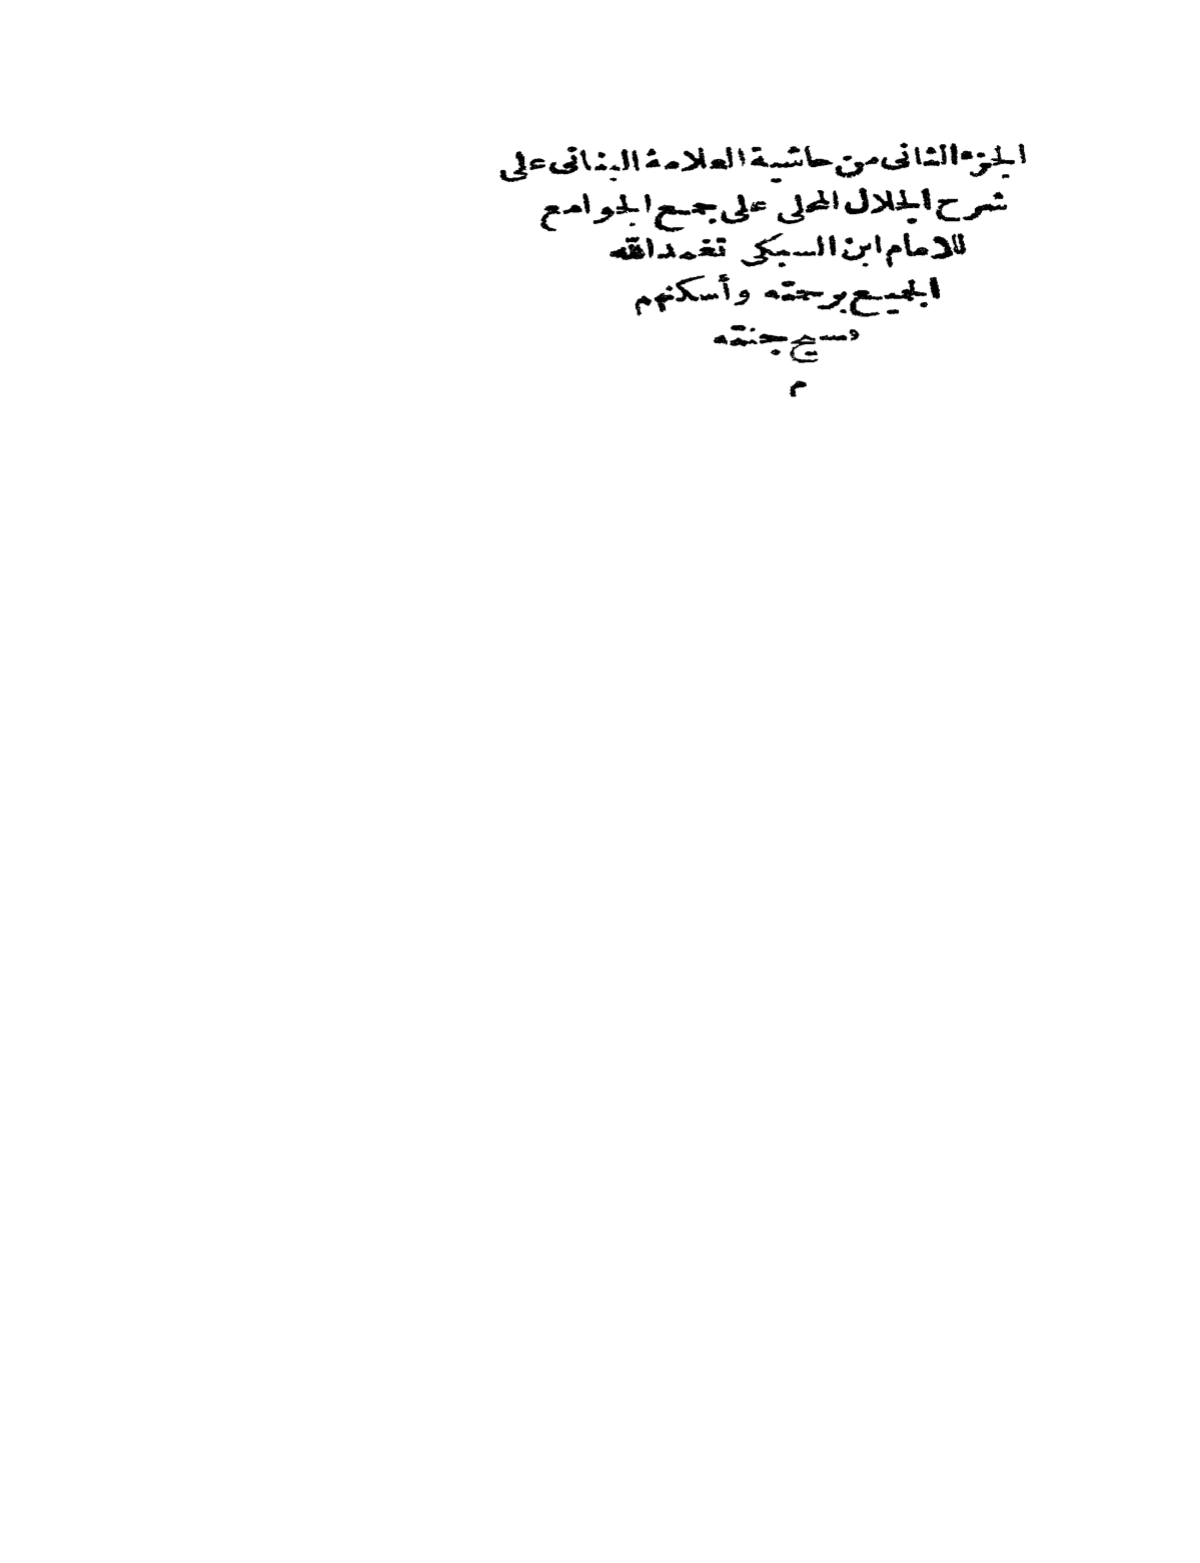 الجزء الثانى من حاشية العلامة البنانى على
شرح الجلال المحلى على جمع الجوامع
للامام ابن السبكى تغمد الله
الجميع برحمته وأسكنهم
فسيح جنته
م